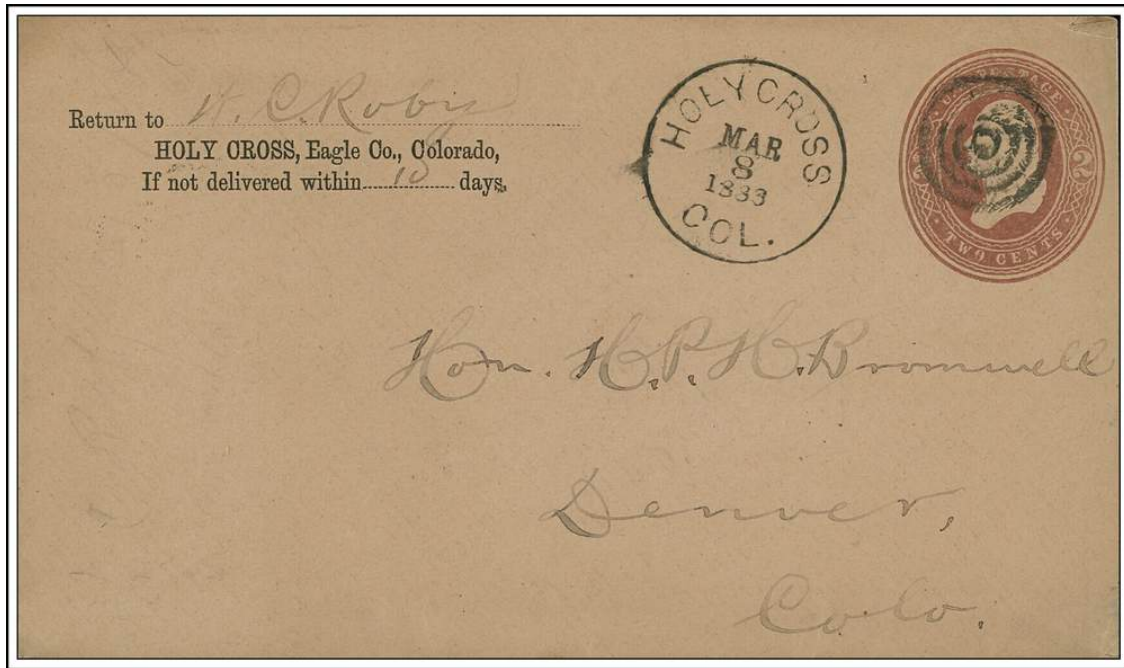 Return to H. C. Roby
HOLY CROSS, Eagle Co., Colorado,
If not delivered within 10 days,
HOLY CROSS
MAR
8
1883
COL.
2
TWO CENTS
Hon. H. P. H. Bromwell
Denver,
Colo.